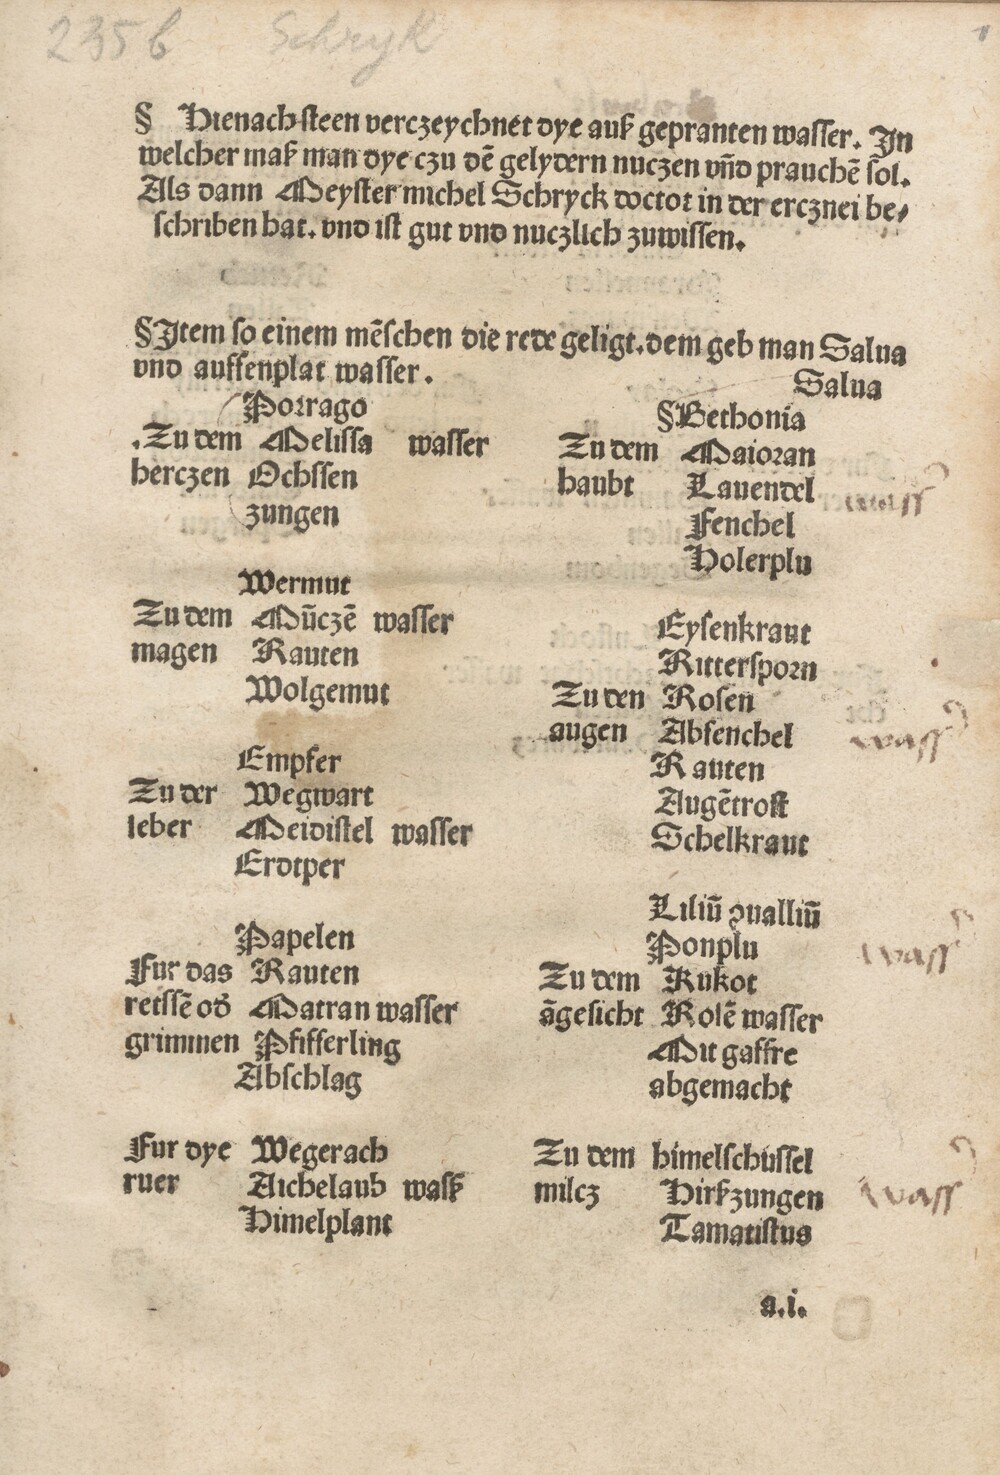 235b Schryk
§ Hienach steen verczeychnet dye auß gepranten wasser. In
welcher maß man dye czu dē gelydern nuczen vñd prauchē sol.
Als dann Meyster michel Schryck doctor in der ercznei be⸗
schriben hat. vnd ist gut vnd nuczlich zuwissen.
§ Item so einem mēschen die rede geligt. dem geb man Salua
vnd auffenplat wasser.
Porrago
.Zu dem Melissa wasser
herczen Ochssen
zungen
Wermut
Zu dem Mūczē wasser
magen Rauten
Wolgemut
Empfer
Zu der Wegwart
leber Meidistel wasser
Erdtper
Papelen
Fur das Rauten
reissē od̄ Matran wasser
grimmen Pfifferling
Abschlag
Fur dye Wegerach
ruer Aichelaub wasß
Himelplant
Salua
§ Bethonia
Zu dem Maioran
haubt Lauendel wass
Fenchel
Holerplu
Eysenkraut
Rittersporn
Zu den Rosen
augen Abfenchel wass
Rauten
Augētrost
Schelkraut
Liliū ꝯualliū
Ponplu wass
Zu dem Kukot
āgesicht Rosē wasser
Mit gaffre
abgemacht
Zu dem himelschüssel
milcz Hirßzungen wass
Tamatistus
a.i.